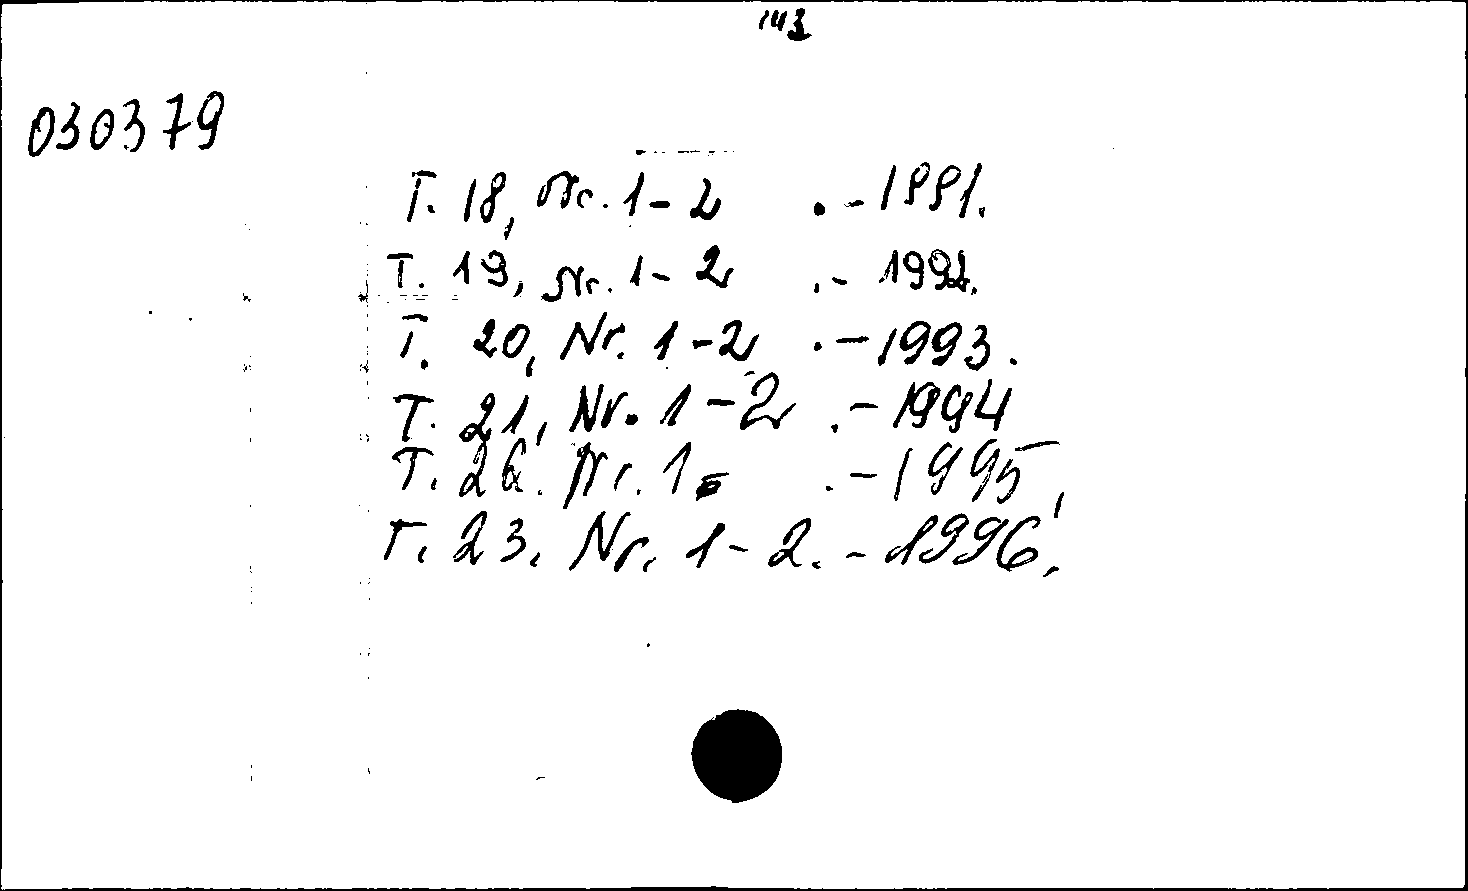 143
030379
T. 18, Nr. 1-2 . - 1991.
T. 19, Nr. 1-2 . - 1992.
T. 20, Nr. 1-2 . - 1993.
T. 21, Nr. 1-2 . - 1994
T. 22. Nr. 1 . - 1995,
T. 23. Nr. 1-2. - 1996.